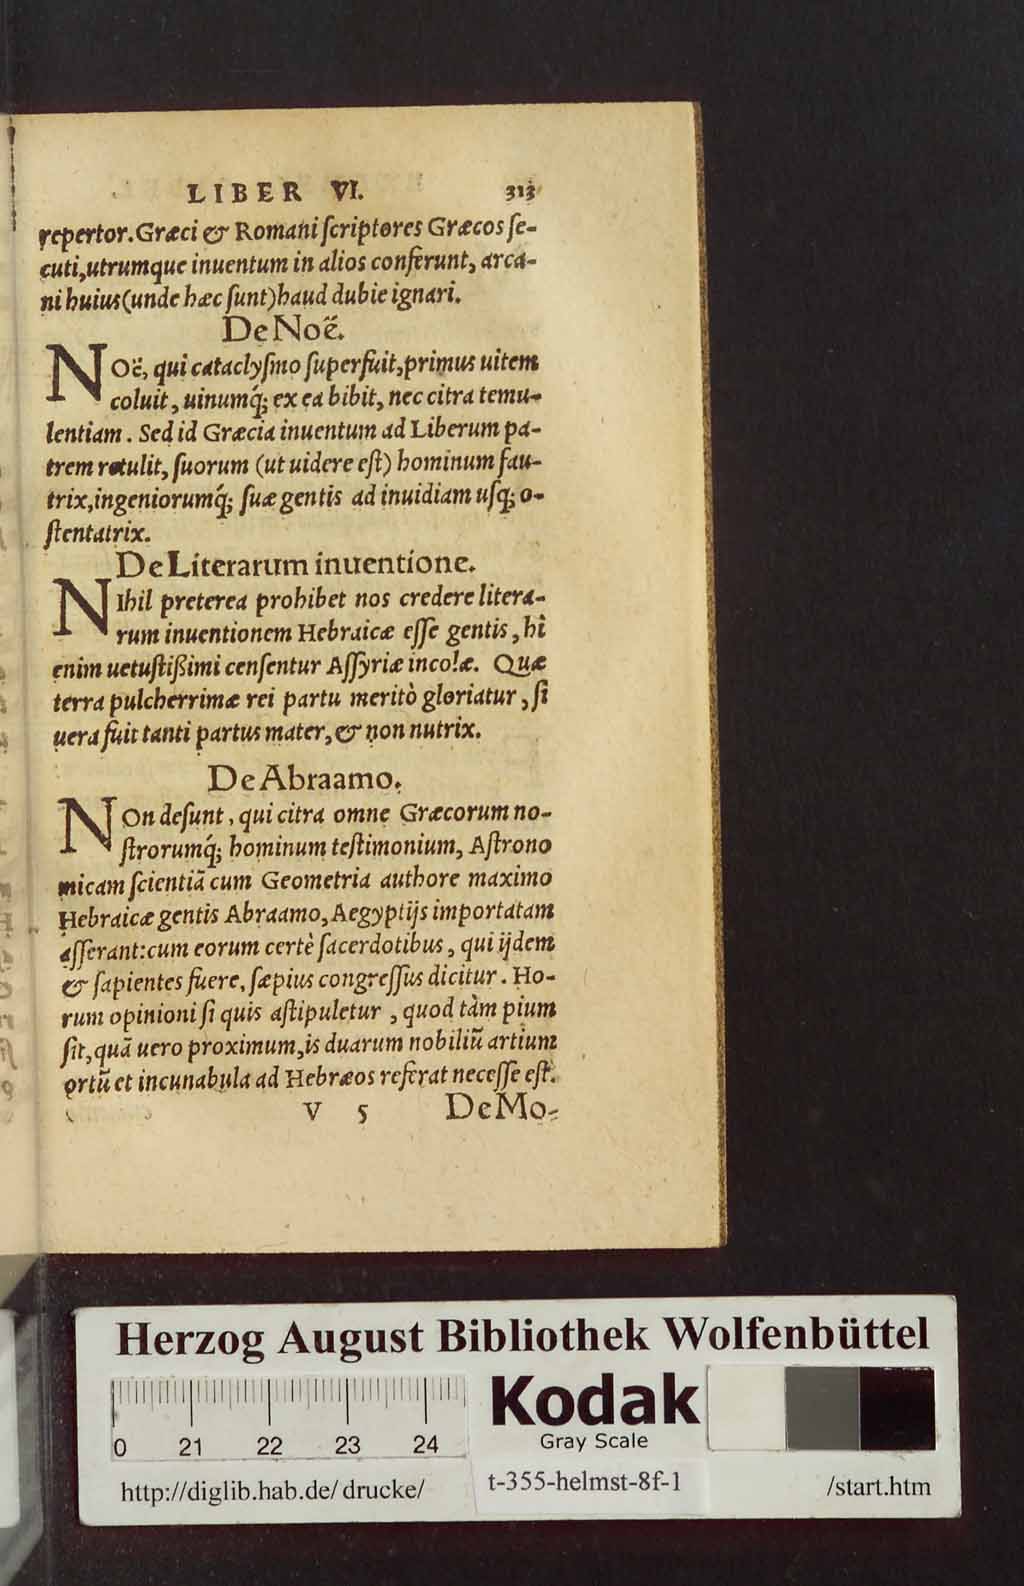 LIBER VI. 313
repertor. Græci & Romani ſcriptores Græcos ſe-
cuti, utrumque inuentum in alios conferunt, arca-
ni huius (unde hæc ſunt) haud dubie ignari.
De Noë.
NOë, qui cataclyſmo ſuperfuit, primus uitem
coluit, uinumq́; ex ea bibit, nec citra temu-
lentiam. Sed id Græcia inuentum ad Liberum pa-
trem retulit, ſuorum (ut uidere eſt) hominum fau-
trix, ingeniorumq́; ſuæ gentis ad inuidiam uſq; o-
ſtentatrix.
De Literarum inuentione.
NIhil preterea prohibet nos credere litera-
rum inuentionem Hebraicæ eſſe gentis, hi
enim uetuſtißimi cenſentur Aſſyriæ incolæ. Quæ
terra pulcherrimæ rei partu meritò gloriatur, ſi
uera fuit tanti partus mater, & non nutrix.
De Abraamo.
NOn deſunt, qui citra omne Græcorum no-
ſtrorumq́; hominum teſtimonium, Aſtrono
micam ſcientiā cum Geometria authore maximo
Hebraicæ gentis Abraamo, Aegyptijs importatam
aſſerant: cum eorum certè ſacerdotibus, qui ijdem
& ſapientes fuere, ſæpius congreſſus dicitur. Ho-
rum opinioni ſi quis aſtipuletur, quod tàm pium
ſit, quā uero proximum, is duarum nobiliū artium
ortū et incunabula ad Hebræos referat neceſſe eſt.
V 5 De Mo-
Herzog August Bibliothek Wolfenbüttel
Kodak
Gray Scale
0 21 22 23 24
http://diglib.hab.de/ drucke/ t-355-helmst-8f-1 /start.htm